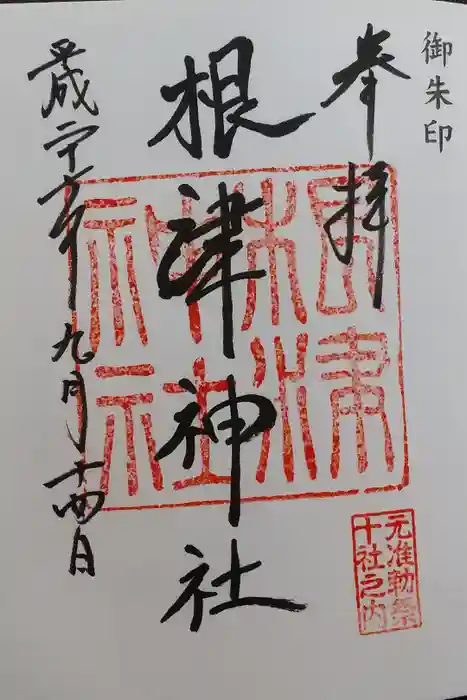 御朱印
奉拝
根津神社
平成 九月十四日
根津
神社
元准勅祭
十社之内